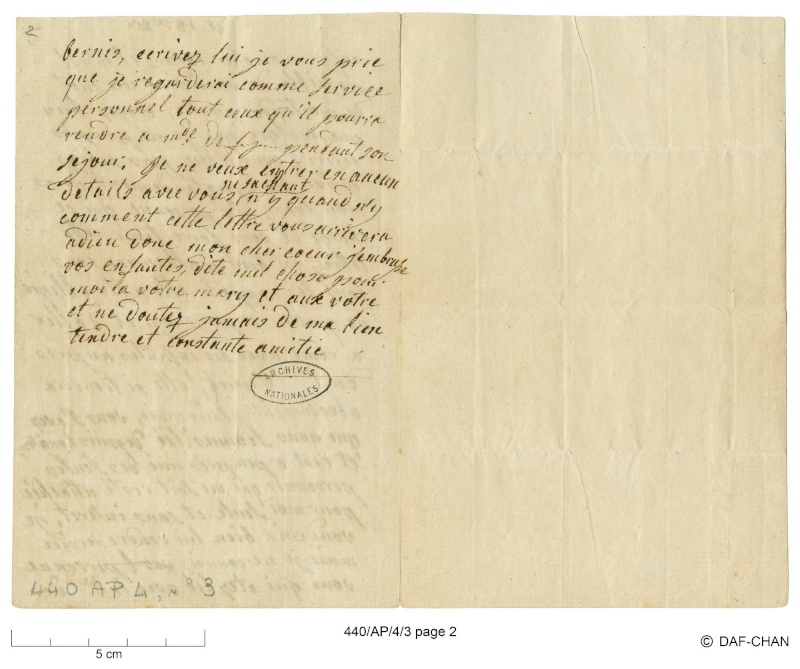 2
bernis, ecrivez lui je vous prie
que je regarderai comme service
personnel tout ceux qu'il pourra
rendre a mde de pendant son
sejour. Je ne veux entrer en aucun
details avec vous ne sachant n'y quand n'y
comment cette lettre vous arrivera
adieu donc mon cher coeur j'embrasse
vos enfantes, dite mil chose pour
moi a votre mary et aux votre
et ne doutez jamais de ma bien
tendre et constante amitie
ARCHIVES
NATIONALES
440 AP 4, n° 3
5 cm
440/AP/4/3 page 2
© DAF-CHAN